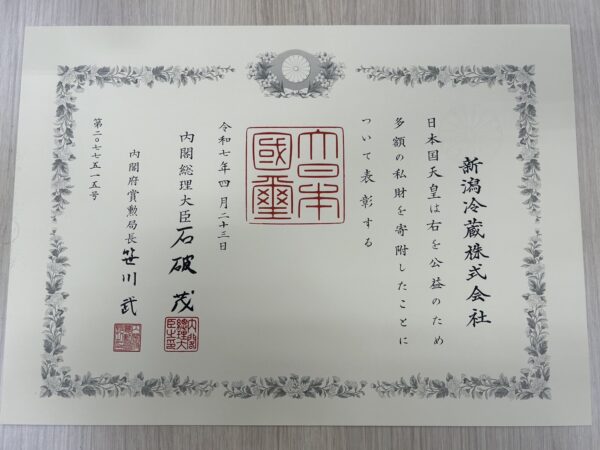 新潟冷蔵株式会社
日本国天皇は右を公益のため
多額の私財を寄附したことに
ついて表彰する
大日本
國璽
令和七年四月二十三日
内閣総理大臣 石破 茂
内閣
総理大
臣之印
内閣府賞勲局長 笹川 武
第二〇七七五一五号